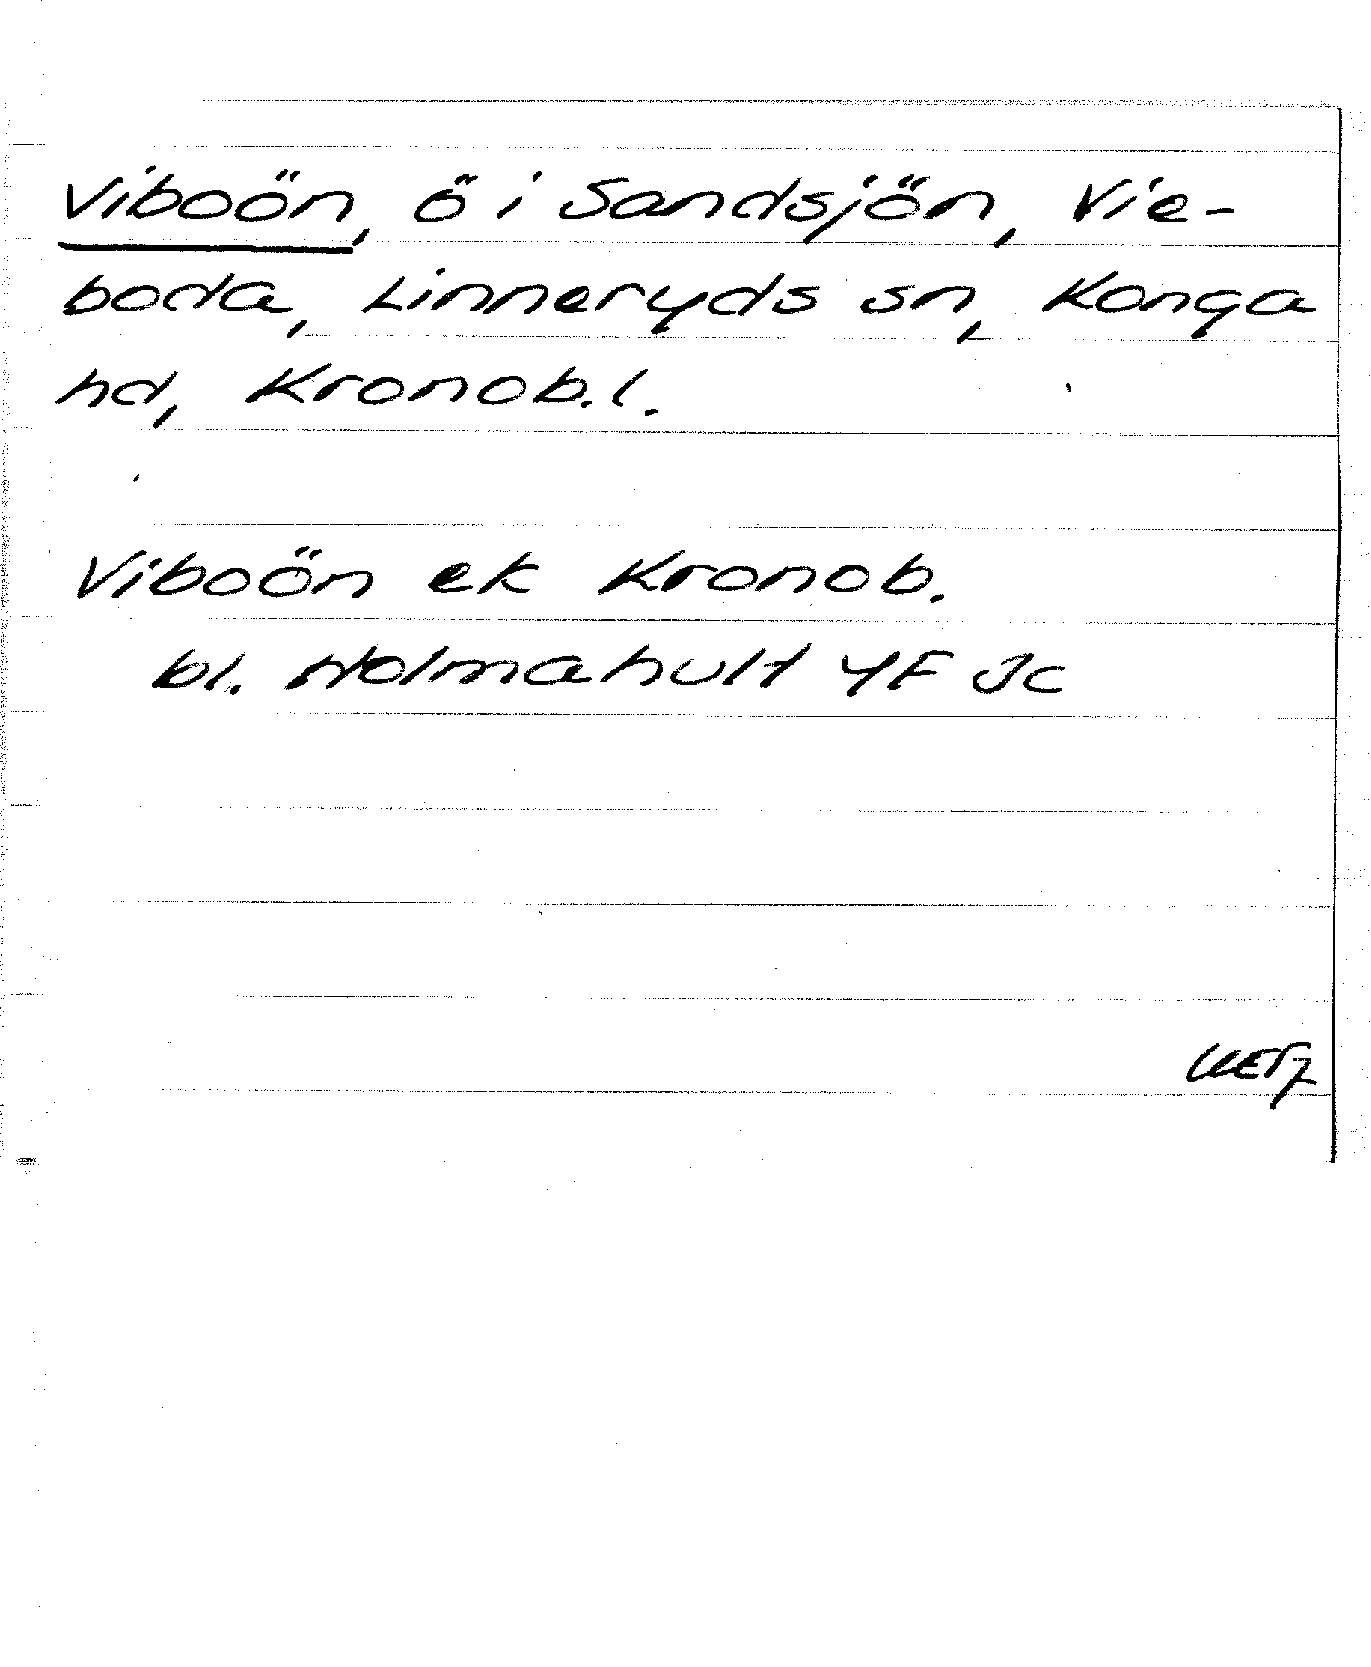 Viboön, ö i Sandsjön, Vie-
boda, Linneryds sn, Konga
hd, Kronob.l.
Viboön ek Kronob.
bl. Holmahult 4F Jc